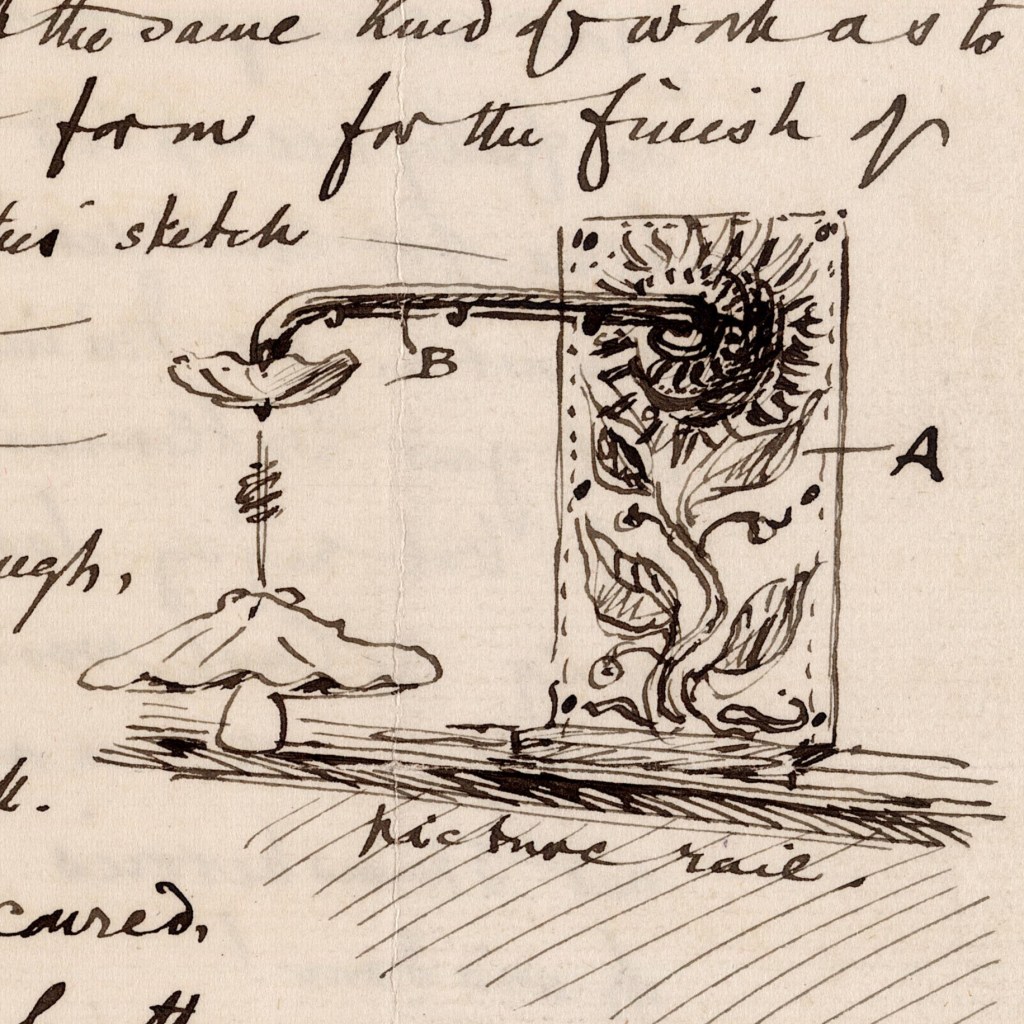 the same kind of work as to
form for the finish of
this sketch
B
A
ugh,
k.
picture rail.
coured,